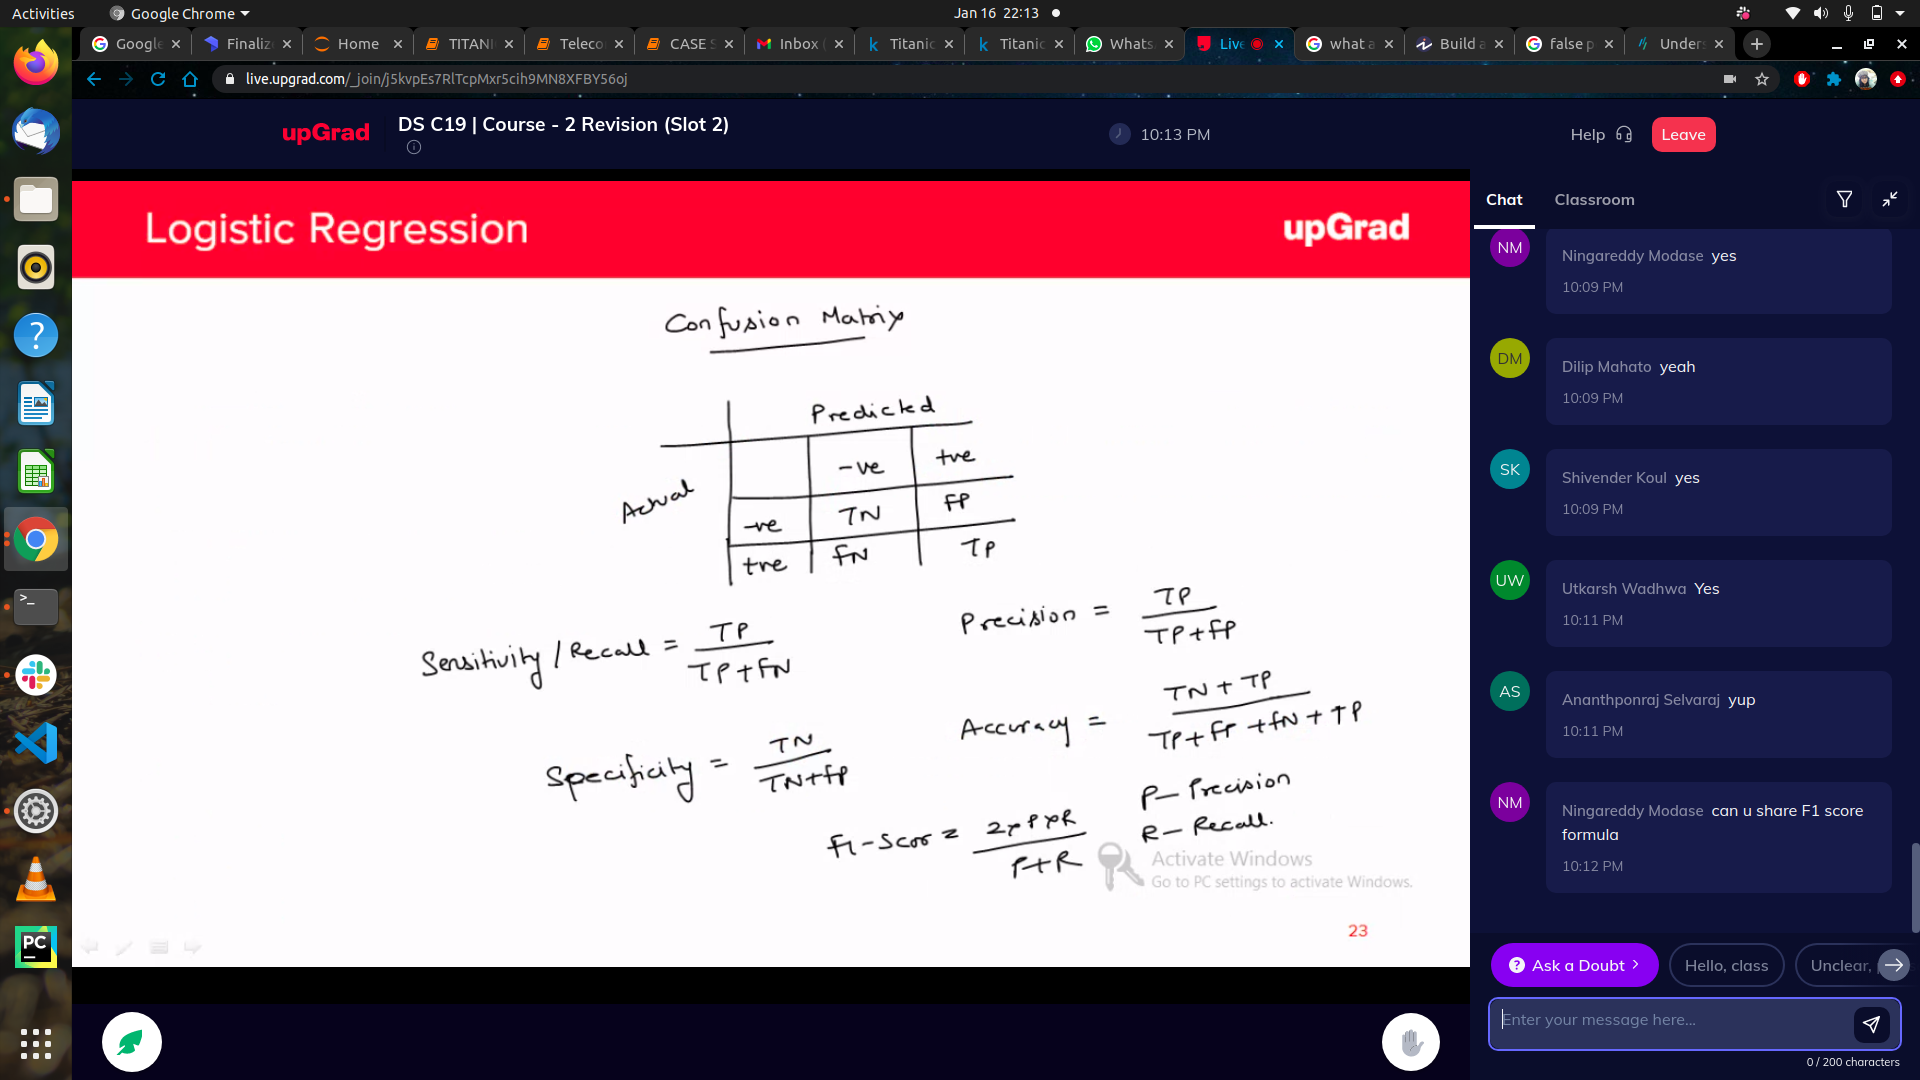 Activities
Google Chrome
Jan 16 22:13
Google
Finaliz
Home
TITANI
Teleco
CASE S
Inbox (
Titanic
Titanic
Whats
Live
what a
Build a
false p
Unders
live.upgrad.com/_join/j5kvpEs7RlTcpMxr5cih9MN8XFBY56oj
upGrad
DS C19 | Course - 2 Revision (Slot 2)
10:13 PM
Help
Leave
Logistic Regression
upGrad
Confusion Matrix
Predicted
Actual
-ve +ve
-ve TN FP
+ve FN TP
Sensitivity / Recall = TP
TP + FN
Precision = TP
TP + FP
Specificity = TN
TN + FP
Accuracy = TN + TP
TP + FP + FN + TP
F1 - Scor = 2 x P x R
P + R
P - Precision
R - Recall.
Activate Windows
Go to PC settings to activate Windows.
23
Chat
Classroom
NM
Ningareddy Modase yes
10:09 PM
DM
Dilip Mahato yeah
10:09 PM
SK
Shivender Koul yes
10:09 PM
UW
Utkarsh Wadhwa Yes
10:11 PM
AS
Ananthponraj Selvaraj yup
10:11 PM
NM
Ningareddy Modase can u share F1 score
formula
10:12 PM
Ask a Doubt
Hello, class
Unclear,
Enter your message here...
0 / 200 characters
PC